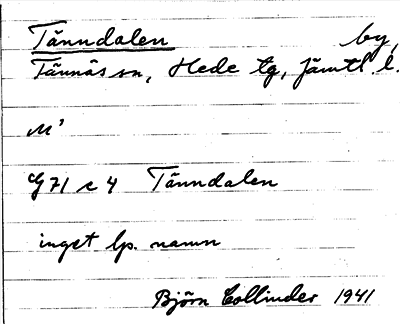 Tänndalen by,
Tännäs sn, Hede tg, Jämtl l.
M'
G 71 c 4 Tänndalen
inget lp. namn
Björn Collinder 1941